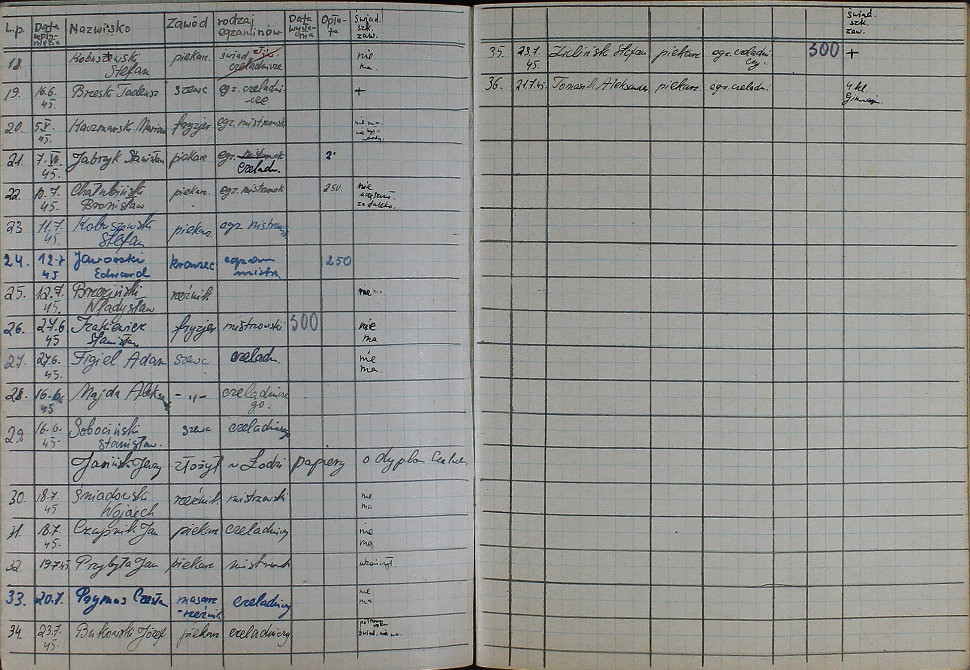 L.p. Data wpły- nięcia Nazwisko Zawód rodzaj egzaminów Data wysła- nia Opła- ta świad. szk. zaw.
18. Kobuszewski Stefan piekarz świad czeladnicze nie ma.
19. 16.6. 45. Brzeski Tadeusz szewc egz. czeladni- cze +
20. 45. Kaczmarski Marian fryzjer egz. mistrzowsk
21. 7.VII 45. Jabryk Stanisław piekarz egz. mistrzowsk czeladn.
22. 10.7. 45. Chałubiński Bronisław piekarz egz. mistrzowsk 250. nie
23. 11.7. 45. Kobuszewski Stefan piekarz egz mistrzowsk
24. 12.7 45 Jaworski Edward krawiec egzam mistrz 250
25. 12.7. 45. Brzeziński Władysław rzeźnik nie ma
26. 27.6 45 Stanisław fryzjer mistrzowski 300 nie ma
27. 27.6. 45. Figiel Adam szewc czeladn. nie ma.
28. 16.6. 45 Majda Aleks - „ - czeladnicze go.
29. 16.6. 45- Sobociński Stanisław. szewc czeladniczy
Jasiński Jerzy złożył w Łodzi papiery o dyplom
30. 18.7. 45 Gniadowski Wojciech rzeźnik mistrzowski nie ma
31. 18.7. 45. Jan piekarz czeladniczy nie ma
32. 19.7.45 Przybyła Jan piekarz mistrzowsk ukończył.
33. 20.7. Czesła masarz -rzeźnik czeladniczy nie ma
34. 23.7. 45. Bukowski Józef piekarz czeladniczy
świad. szk. zaw.
35. 23.7. 45. Zieliński Stefan piekarz egz. czeladni czy 300 +
36. 21.7.45 Tomasik Aleksander piekarz egz. czeladn. 4 kl. Gimnazj.